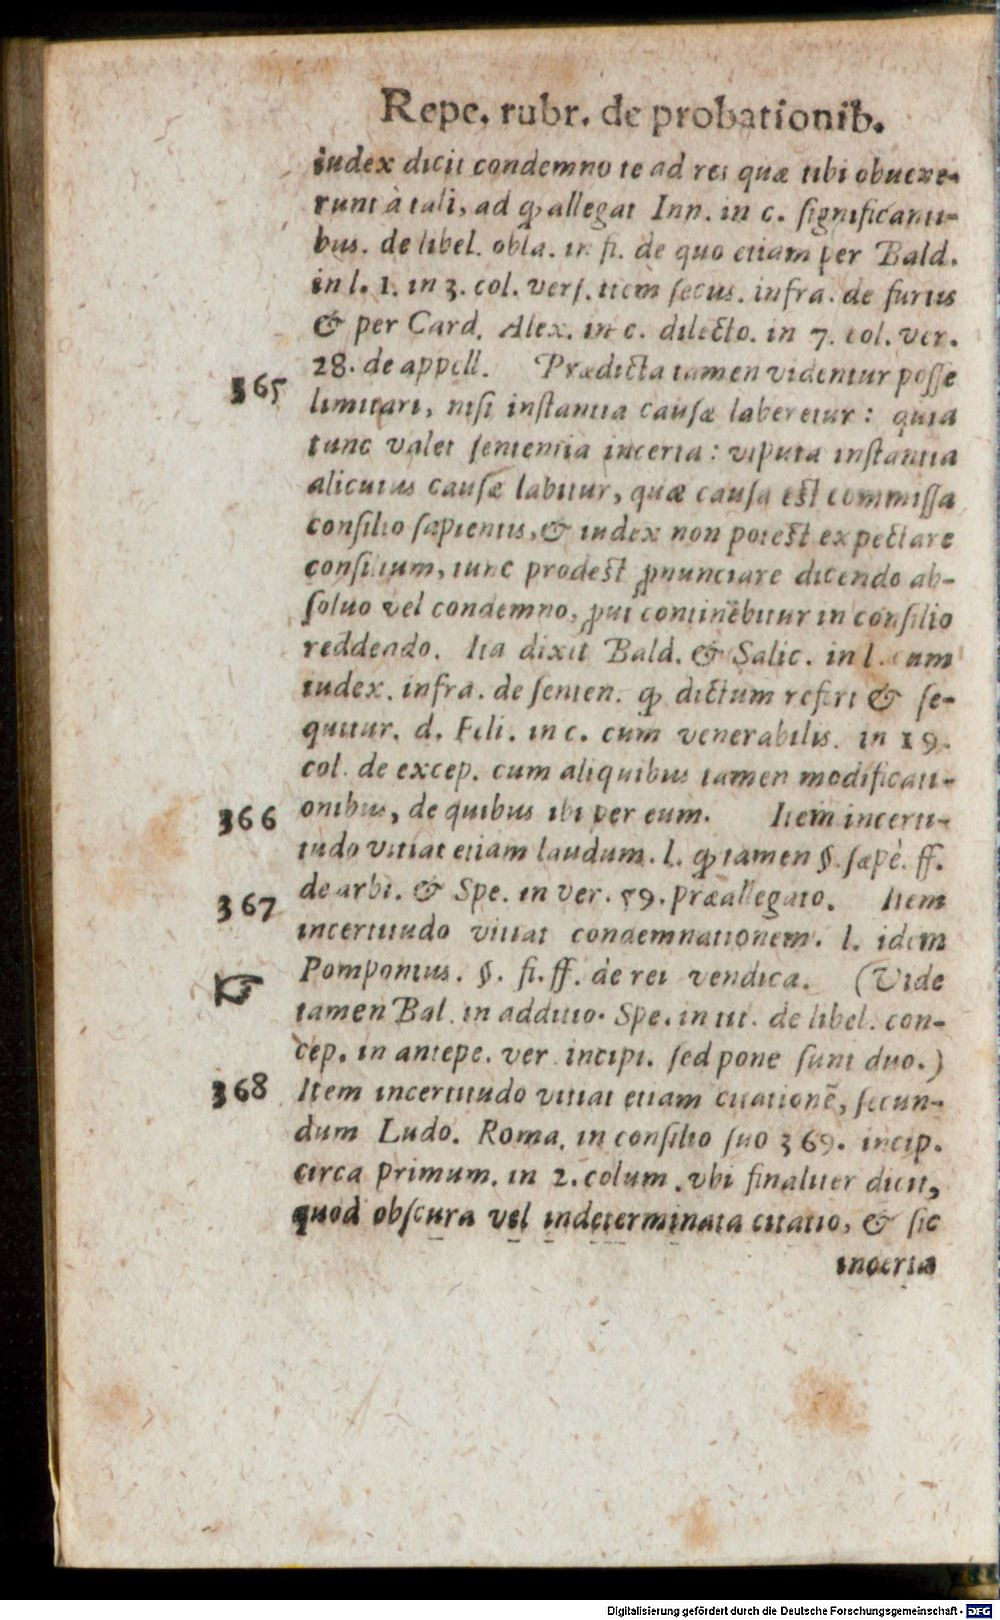 Repe. rubr. de probationib.
iudex dicit condemno te ad res quæ tibi obuene-
runt à tali, ad ꝙ allegat Inn. in c. ſignificanti-
bus. de libel. obla. in fi. de quo etiam per Bald.
in l. 1. in 3. col. verſ. item ſecus. infra. de furtis
& per Card. Alex. in c. dilecto. in 7. col. ver.
28. de appell. Prædicta tamen videntur poſſe
365
limitari, niſi inſtantia cauſæ laberetur: quia
tunc valet ſententia incerta: vtputa inſtantia
alicuius cauſæ labitur, quæ cauſa est commiſſa
conſilio ſapientis, & iudex non potest expectare
conſilium, tunc prodest ꝓnunciare dicendo ab-
ſoluo vel condemno, ꝓut continēbitur in conſilio
reddendo. Ita dixit Bald. & Salic. in l. cum
iudex. infra. de ſenten. ꝙ dictum refert & ſe-
quitur. d. Feli. in c. cum venerabilis. in 19.
col. de excep. cum aliquibus tamen modificati-
366
onibus, de quibus ibi per eum. Item incerti-
tudo vitiat etiam laudum. l. ꝙ tamen §. ſæpè. ff.
de arbi. & Spe. in ver. 59. præallegato. Item
367
incertitudo vitiat condemnationem. l. idem
Pomponius. §. fi. ff. de rei vendica. (Vide
☞
tamen Bal. in additio. Spe. in tit. de libel. con-
cep. in antepe. ver. incipi. ſed pone ſunt duo.)
368
Item incertitudo vitiat etiam citationē, ſecun-
dum Ludo. Roma. in conſilio ſuo 369. incip.
circa primum. in 2. colum. vbi finaliter dicit,
quod obſcura vel indeterminata citatio, & ſic
incerta
Digitalisierung gefördert durch die Deutsche Forschungsgemeinschaft - DFG